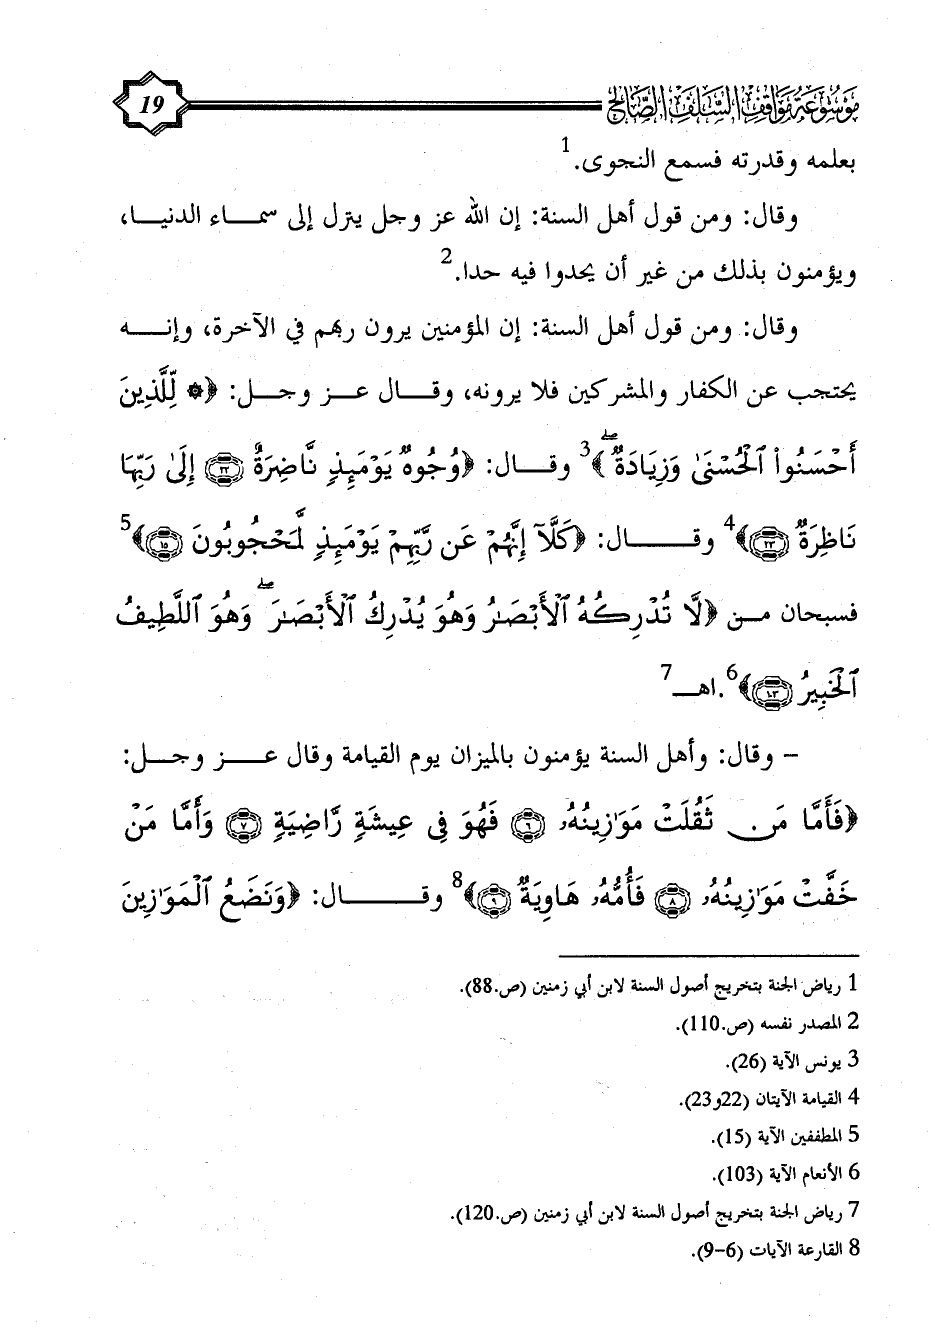 موسوعة مواقف السلف الصالح 19
بعلمه وقدرته فسمع النجوى.1
وقال: ومن قول أهل السنة: إن الله عز وجل ينزل إلى سماء الدنيا،
ويؤمنون بذلك من غير أن يحدوا فيه حدا.2
وقال: ومن قول أهل السنة: إن المؤمنين يرون ربهم في الآخرة، وإنه
يحتجب عن الكفار والمشركين فلا يرونه، وقال عز وجل: ﴿۞ لِّلَّذِينَ
أَحْسَنُواْ ٱلْحُسْنَىٰ وَزِيَادَةٌۖ﴾3 وقال: ﴿وُجُوهٌ يَوْمَئِذٍ نَّاضِرَةٌ ٢٢ إِلَىٰ رَبِّهَا
نَاظِرَةٌ ٢٣﴾4 وقال: ﴿كَلَّآ إِنَّهُمْ عَن رَّبِّهِمْ يَوْمَئِذٍ لَّمَحْجُوبُونَ ١٥﴾5
فسبحان من ﴿لَّا تُدْرِكُهُ ٱلْأَبْصَٰرُ وَهُوَ يُدْرِكُ ٱلْأَبْصَٰرَۖ وَهُوَ ٱللَّطِيفُ
ٱلْخَبِيرُ ١٠٣﴾6.اهـ7
– وقال: وأهل السنة يؤمنون بالميزان يوم القيامة وقال عز وجل:
﴿فَأَمَّا مَن ثَقُلَتْ مَوَٰزِينُهُۥ ٦ فَهُوَ فِي عِيشَةٍ رَّاضِيَةٍ ٧ وَأَمَّا مَنْ
خَفَّتْ مَوَٰزِينُهُۥ ٨ فَأُمُّهُۥ هَاوِيَةٌ ٩﴾8 وقال: ﴿وَنَضَعُ ٱلْمَوَٰزِينَ
1 رياض الجنة بتخريج أصول السنة لابن أبي زمنين (ص.88).
2 المصدر نفسه (ص.110).
3 يونس الآية (26).
4 القيامة الآيتان (22و23).
5 المطففين الآية (15).
6 الأنعام الآية (103).
7 رياض الجنة بتخريج أصول السنة لابن أبي زمنين (ص.120).
8 القارعة الآيات (6-9).